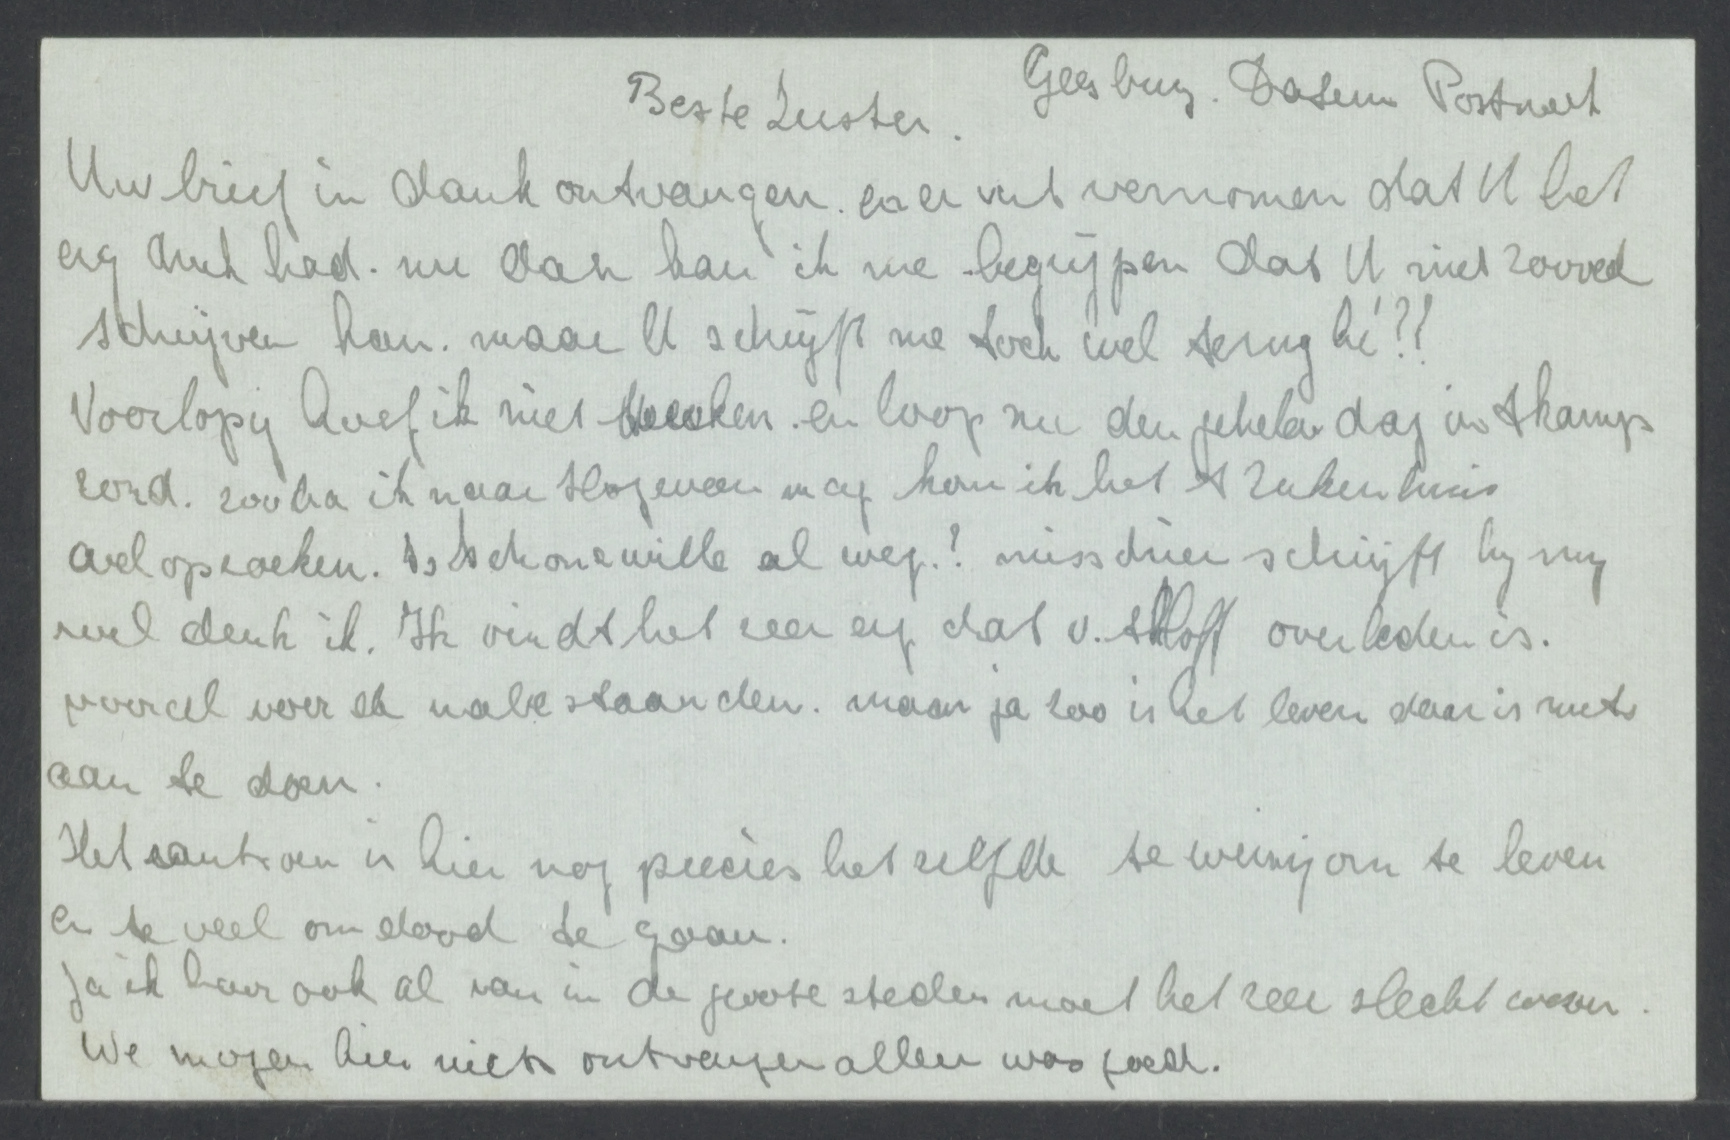 Geesbrug. Datum Postmerk
Beste Zuster.
Uw brief in dank ontvangen. en er uit vernomen dat U het
erg druk had. nu dan kan ik me begrijpen dat U niet zooveel
schrijven kan. maar U schrijft me toch wel terug hé?!
Voorlopig hoef ik niet te werken. en loop nu den gehelen dag in t kamp
rond. zoodra ik naar Hogeveen mag kom ik het t Ziekenhuis
wel opzoeken. Is Schonewille al weg.? misschien schrijft hij mij
wel denk ik. Ik vindt het zeer erg dat v. t Hoff overleden is.
vooral voor de nabestaanden. maar ja zoo is het leven daar is niets
aan te doen.
Het rantsoen is hier nog precies het zelfde te weinig om te leven
en te veel om dood te gaan.
Ja ik hoor ook al van in de groote steden moet het zeer slecht wezen.
We mogen hier niets ontvangen alleen was goed.